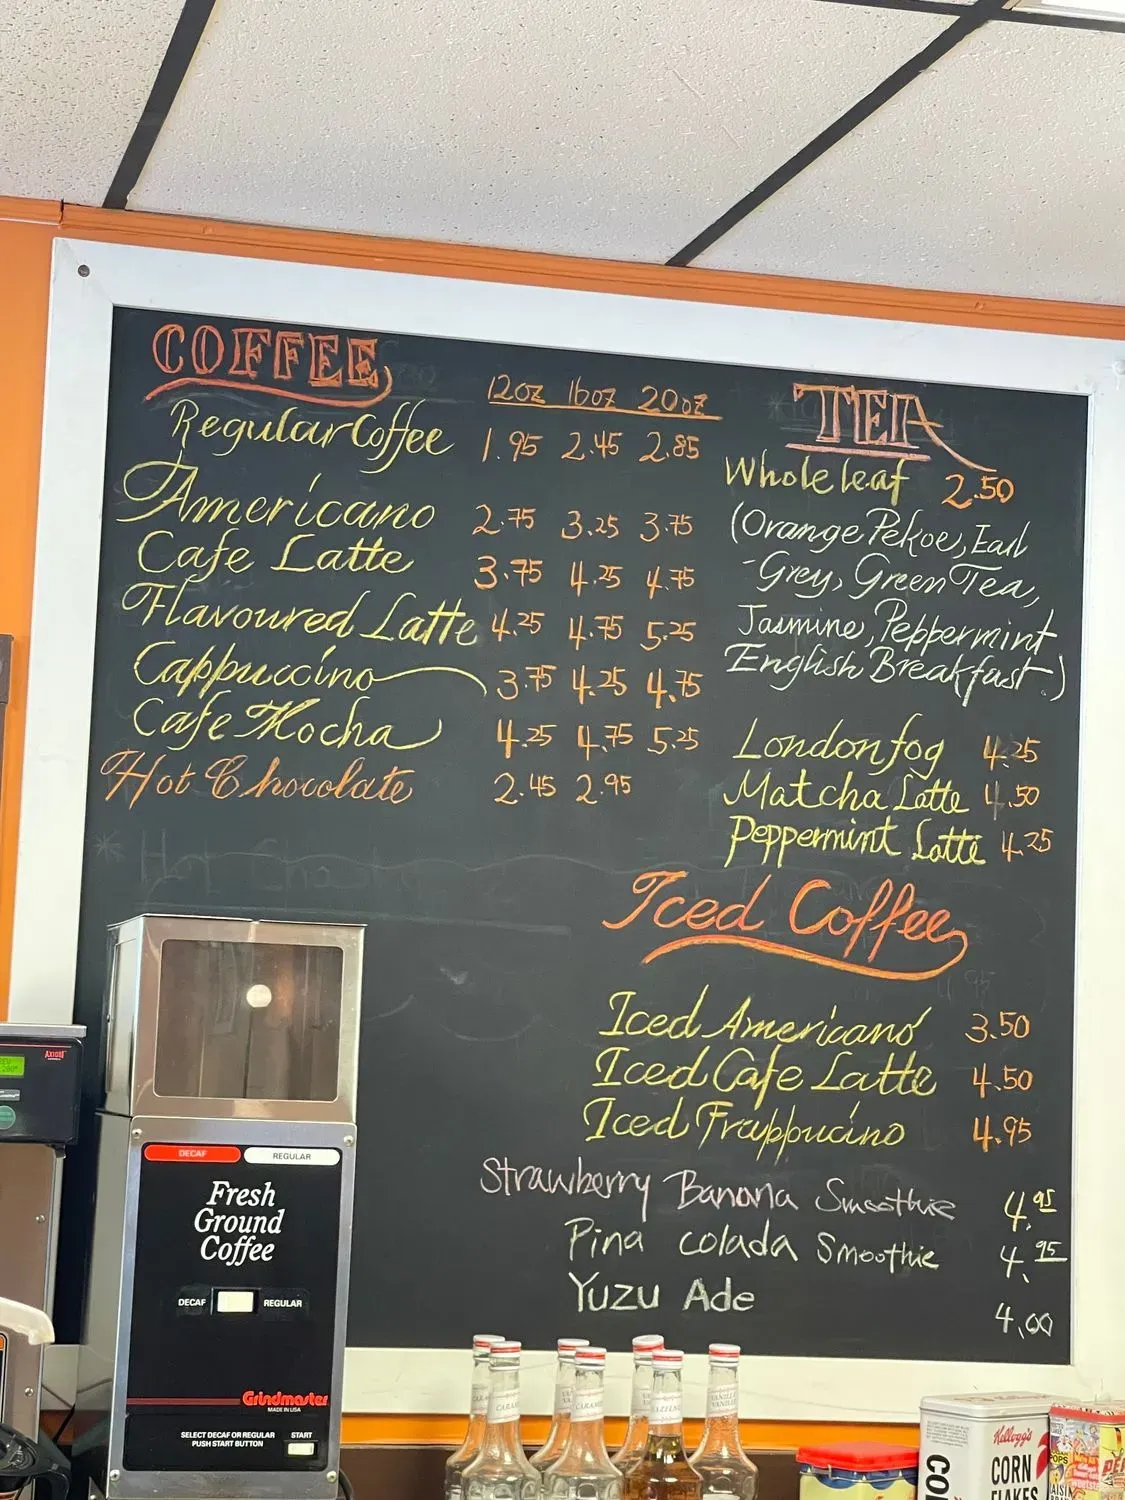 COFFEE
12oz 16oz 20oz
Regular Coffee 1.95 2.45 2.85
Americano 2.75 3.25 3.75
Cafe Latte 3.75 4.25 4.75
Flavoured Latte 4.25 4.75 5.25
Cappuccino 3.75 4.25 4.75
Cafe Mocha 4.25 4.75 5.25
Hot Chocolate 2.45 2.95
TEA
Whole leaf 2.50
(Orange Pekoe, Earl
-Grey, Green Tea,
Jasmine, Peppermint
English Breakfast.)
London fog 4.25
Matcha Latte 4.50
Peppermint Latte 4.25
Iced Coffee
Iced Americano 3.50
Iced Cafe Latte 4.50
Iced Frappucino 4.95
Strawberry Banana Smoothie 4.95
Pina colada Smoothie 4.95
Yuzu Ade 4.00
AXIOM
DECAF REGULAR
Fresh
Ground
Coffee
DECAF REGULAR
Grindmaster
MADE IN USA
SELECT DECAF OR REGULAR
PUSH START BUTTON
START
VANILLE
Kellogg's
CORN
FLAKES